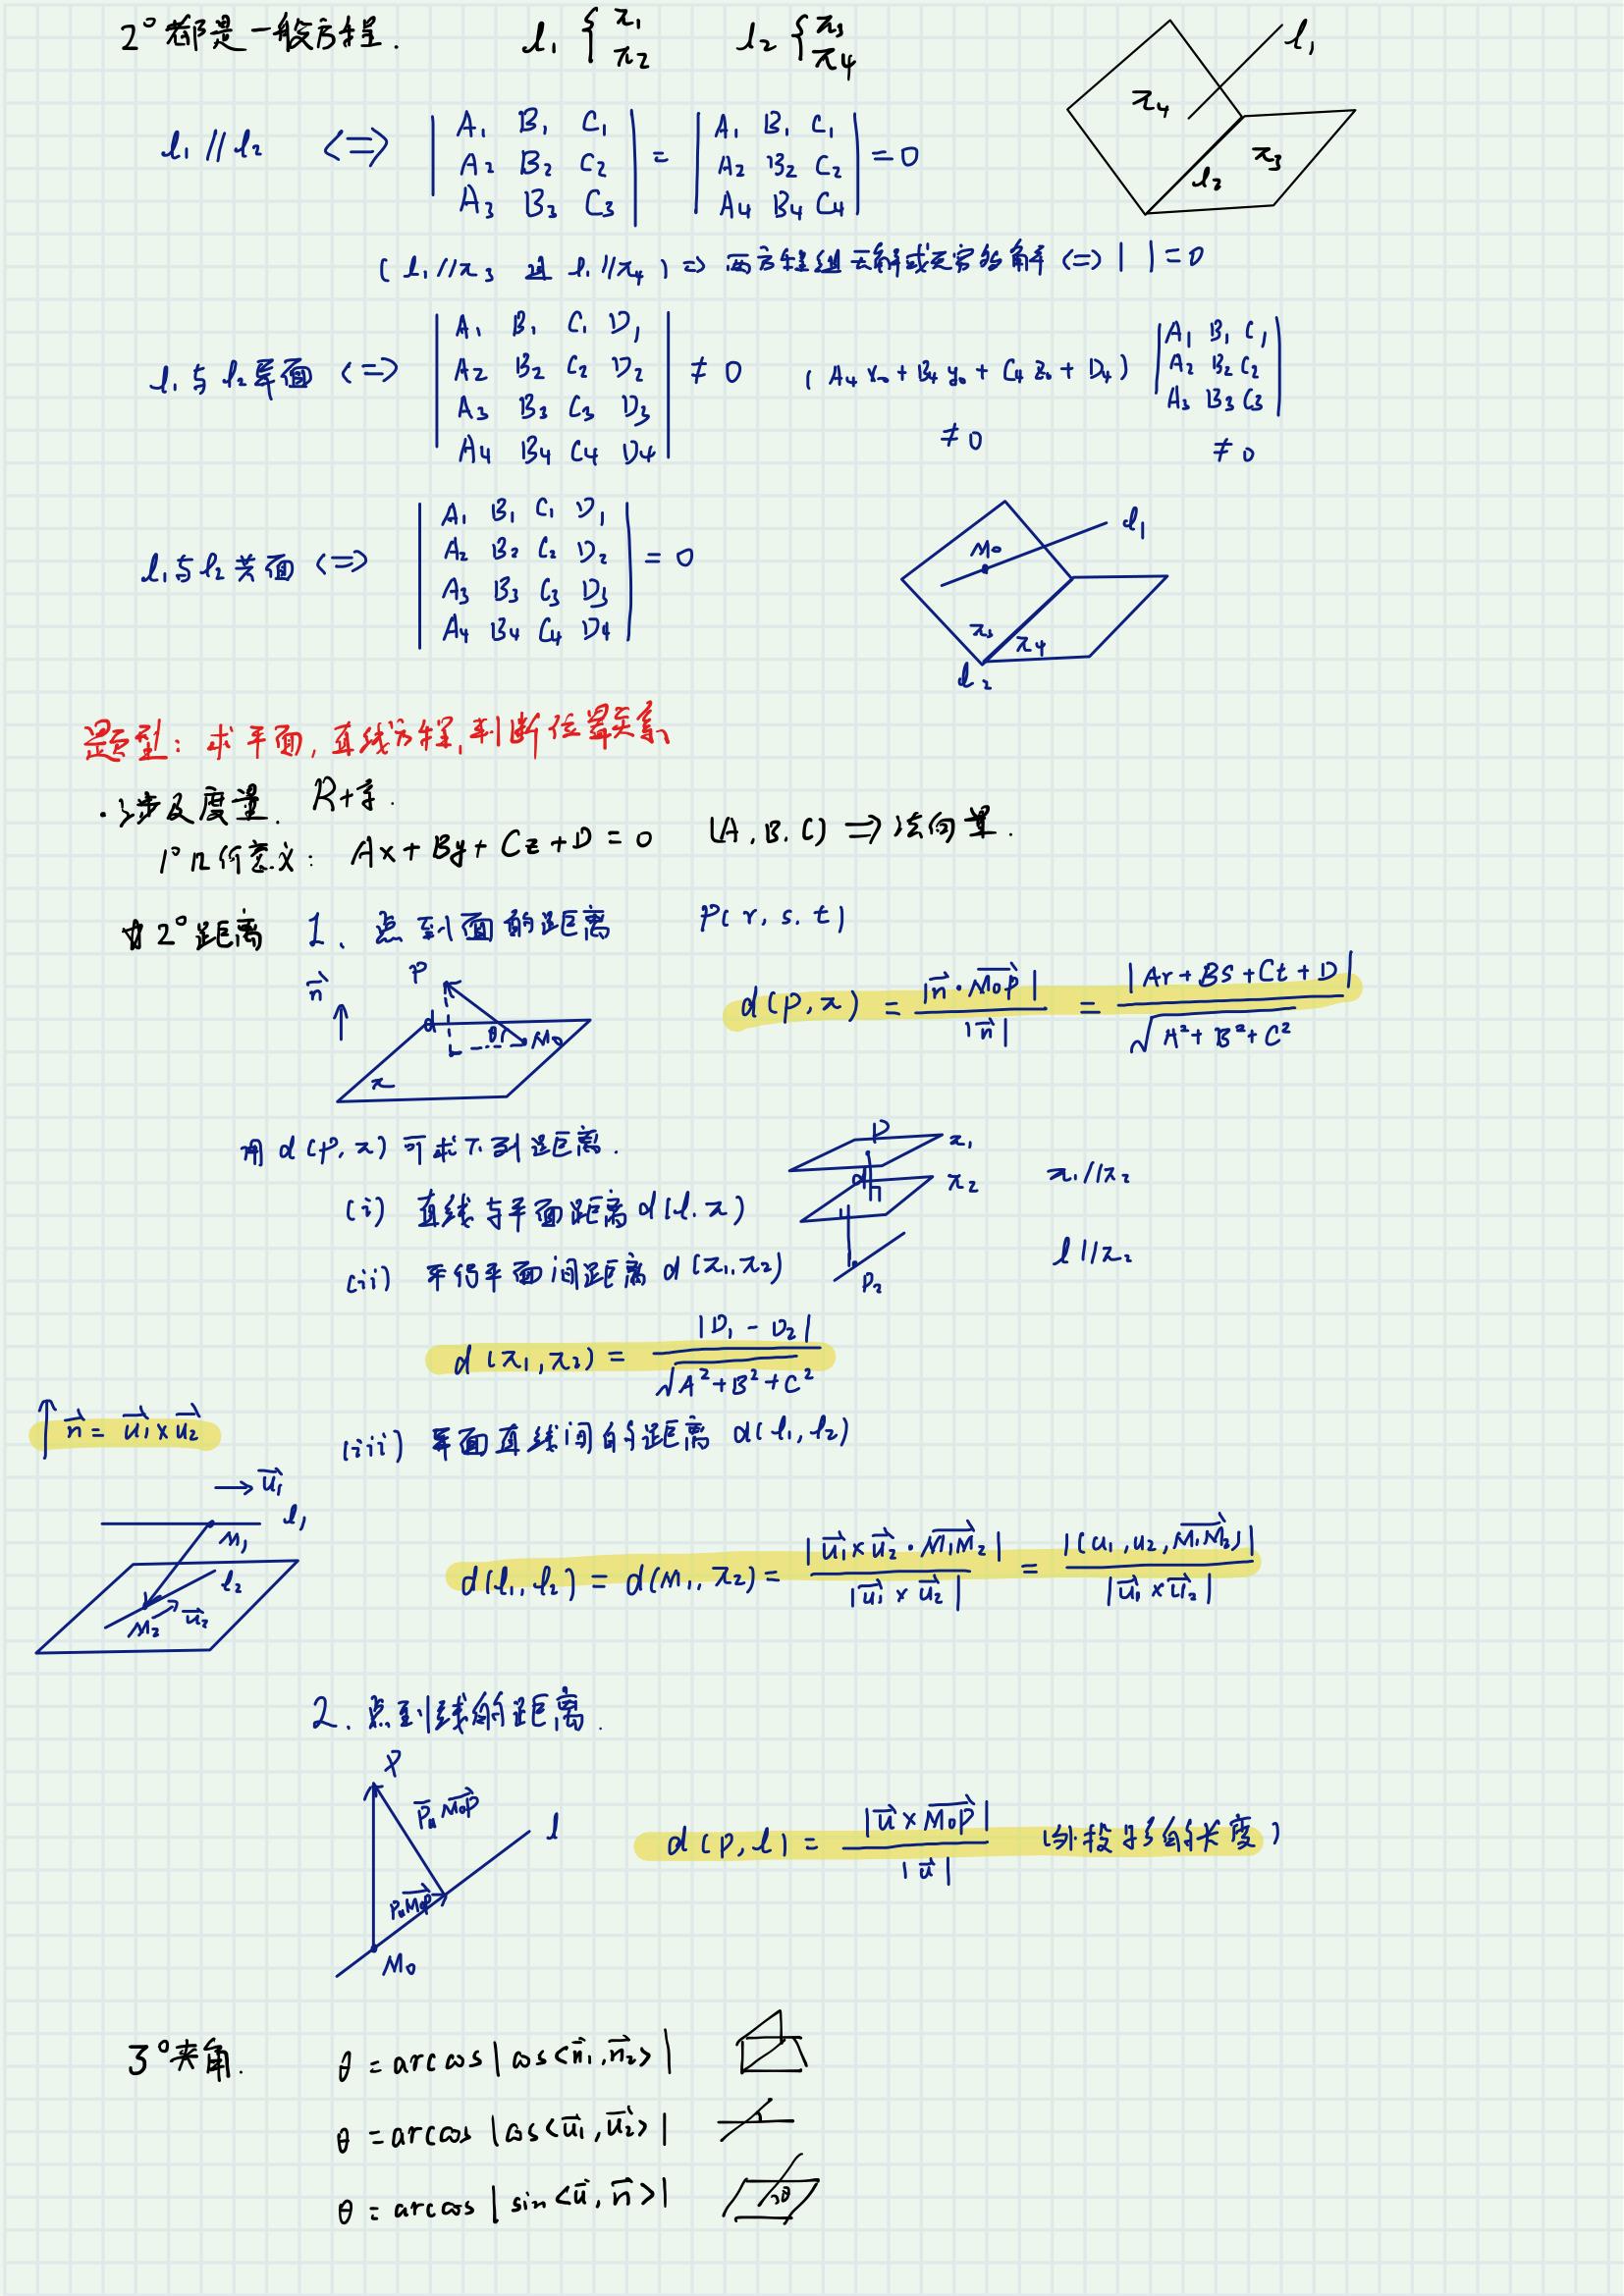 2° 都是一般方程. l₁ { π₁ π₂ l₂ { π₃ π₄
l₁
π₄
π₃
l₂
l₁ // l₂ <=> | A₁ B₁ C₁ | = | A₁ B₁ C₁ | = 0
A₂ B₂ C₂ A₂ B₂ C₂
A₃ B₃ C₃ A₄ B₄ C₄
( l₁//π₃ 且 l₁//π₄ ) => 两方程组无解或无穷多解 <=> | | = 0
l₁与l₂异面 <=> | A₁ B₁ C₁ D₁ | ≠ 0 ( A₄x₀ + B₄y₀ + C₄z₀ + D₄ ) | A₁ B₁ C₁ |
A₂ B₂ C₂ D₂ A₂ B₂ C₂
A₃ B₃ C₃ D₃ A₃ B₃ C₃
A₄ B₄ C₄ D₄ ≠ 0 ≠ 0
l₁与l₂共面 <=> | A₁ B₁ C₁ D₁ | = 0
A₂ B₂ C₂ D₂
A₃ B₃ C₃ D₃
A₄ B₄ C₄ D₄
l₁
M₀
π₃
π₄
l₂
题型: 求平面, 直线方程, 判断位置关系
· 涉及度量. R+系.
1° 几何意义: Ax + By + Cz + D = 0 (A, B, C) => 法向量.
☆ 2° 距离 1. 点到面的距离 P( r, s, t )
n⃗ P
d θ M₀
π
d(P, π) = |n⃗·M₀P⃗| / |n⃗| = |Ar + Bs + Ct + D| / √A² + B² + C²
用 d(P, π) 可求下列距离.
P π₁
d π₂ π₁//π₂
(i) 直线与平面距离 d(l, π)
l//π₂
(ii) 平行平面间距离 d(π₁, π₂)
P₂
d(π₁, π₂) = |D₁ - D₂| / √A² + B² + C²
n⃗ = u₁⃗ × u₂⃗
(iii) 异面直线间的距离 d(l₁, l₂)
u₁⃗
l₁
M₁
l₂
M₂ u₂⃗
d(l₁, l₂) = d(M₁, π₂) = |u₁⃗ × u₂⃗ · M₁M₂⃗| / |u₁⃗ × u₂⃗| = |(u₁, u₂, M₁M₂⃗)| / |u₁⃗ × u₂⃗|
2. 点到线的距离.
P
M₀P⃗
l
M₀P⃗
M₀
d(P, l) = |u⃗ × M₀P⃗| / |u⃗| (外投影的长度)
3° 夹角. θ = arccos |cos<n⃗₁, n⃗₂>|
θ = arccos |cos<u⃗₁, u⃗₂>|
θ = arccos |sin<u⃗, n⃗>|
θ